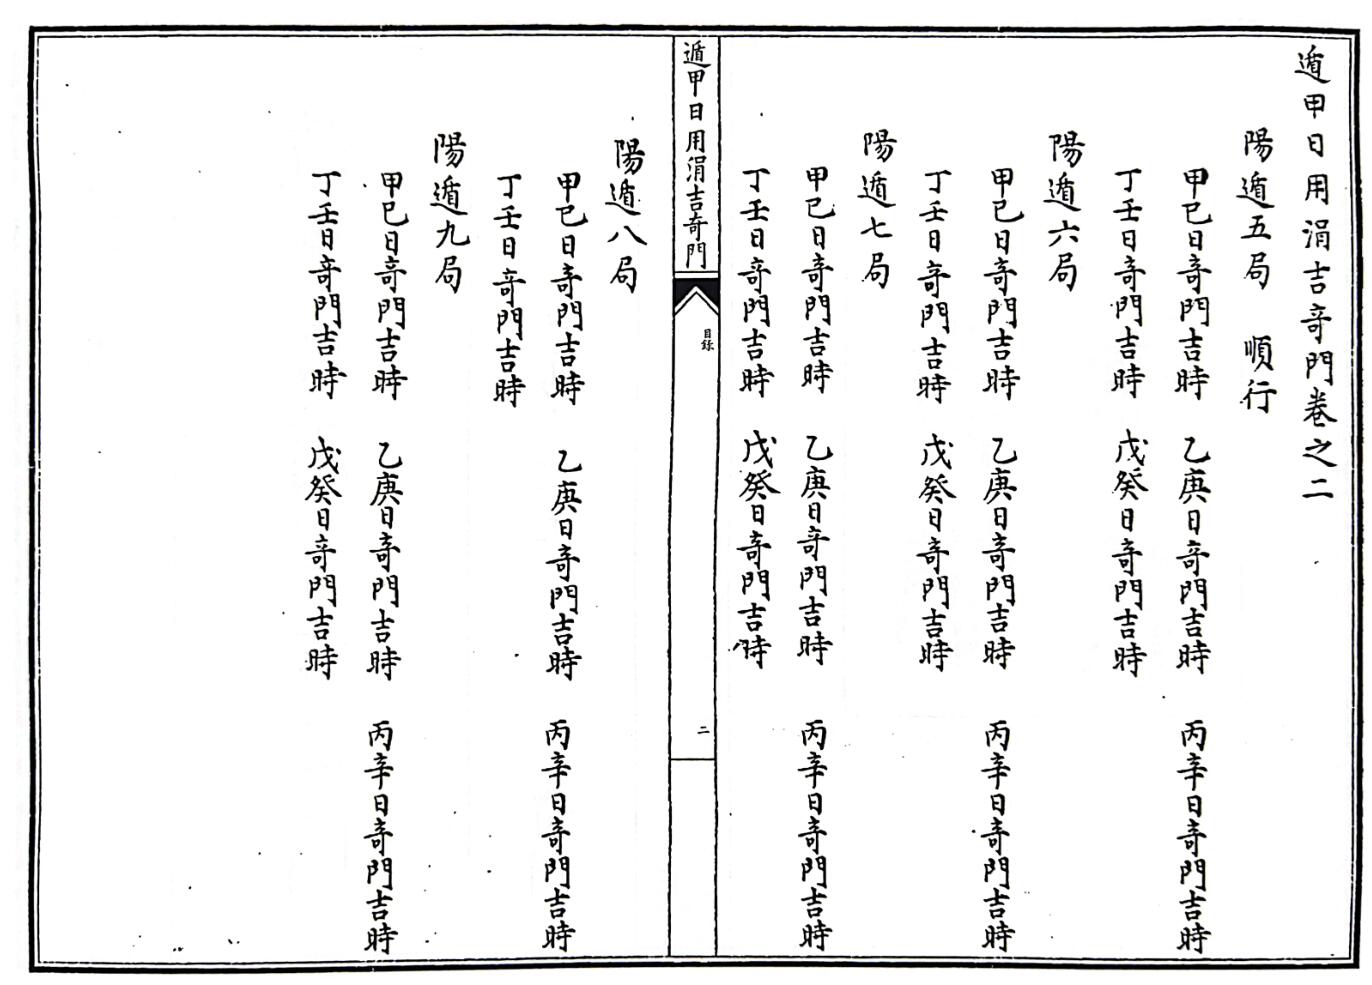 遁甲日用涓吉奇門卷之二
陽遁五局　順行
甲己日奇門吉時　乙庚日奇門吉時　丙辛日奇門吉時
丁壬日奇門吉時　戊癸日奇門吉時
陽遁六局
甲己日奇門吉時　乙庚日奇門吉時　丙辛日奇門吉時
丁壬日奇門吉時　戊癸日奇門吉時
陽遁七局
甲己日奇門吉時　乙庚日奇門吉時　丙辛日奇門吉時
丁壬日奇門吉時　戊癸日奇門吉時
遁甲日用涓吉奇門　目錄　二
陽遁八局
甲己日奇門吉時　乙庚日奇門吉時　丙辛日奇門吉時
丁壬日奇門吉時
陽遁九局
甲己日奇門吉時　乙庚日奇門吉時　丙辛日奇門吉時
丁壬日奇門吉時　戊癸日奇門吉時